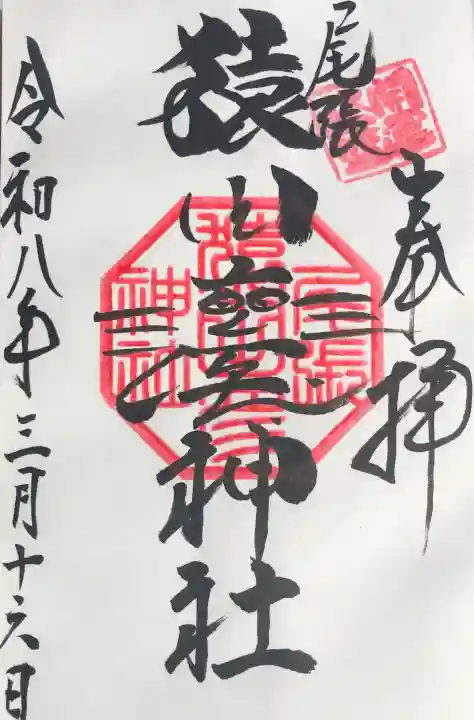 奉拝
尾張
猿田彦神社
令和八年三月十六日
尾張
神社